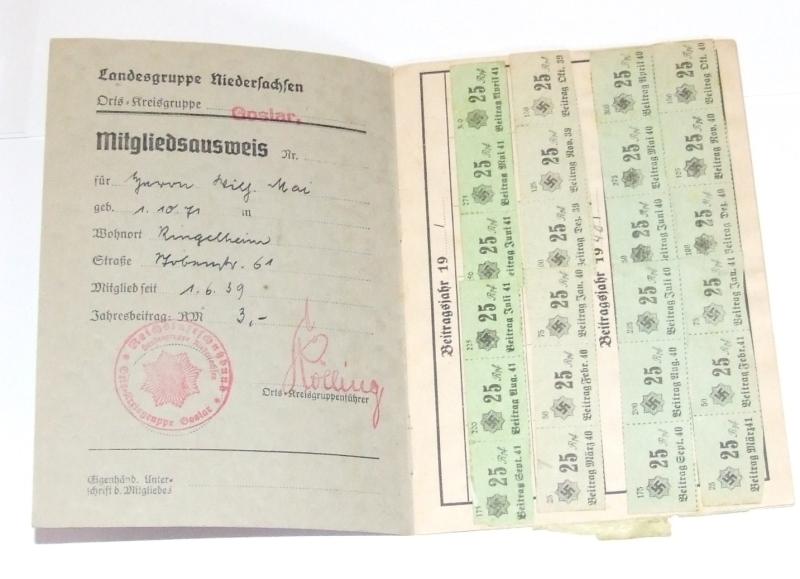 Landesgruppe Niedersachsen
Orts-Kreisgruppe Goslar.
Mitgliedsausweis Nr.
für Herrn Wilh. Mai
geb. 1.10.71 in
Wohnort Ringelheim
Straße 61
Mitglied seit 1.6.39
Jahresbeitrag: RM 3,-
Kölling
Orts-Kreisgruppenführer
Orts-Kreisgruppe Goslar
Eigenhänd. Unter-
schrift d. Mitgliedes
Beitragsjahr 19
300 25 Rpf Beitrag April 41
275 25 Rpf Beitrag Mai 41
25 Rpf Beitrag Juni 41
225 25 Rpf Beitrag Juli 41
200 25 Rpf Beitrag Aug. 41
175 25 Rpf Beitrag Sept. 41
150 25 Rpf Beitrag Okt. 39
125 25 Rpf Beitrag Nov. 39
100 25 Rpf Beitrag Dez. 39
75 25 Rpf Beitrag Jan. 40
50 25 Rpf Beitrag Febr. 40
25 Rpf Beitrag März 40
Beitragsjahr 19
300 25 Rpf Beitrag April 40
275 25 Rpf Beitrag Mai 40
250 25 Rpf Beitrag Juni 40
225 25 Rpf Beitrag Juli 40
200 25 Rpf Beitrag Aug. 40
175 25 Rpf Beitrag Sept. 40
150 25 Rpf Beitrag Okt. 40
125 25 Rpf Beitrag Nov. 40
100 25 Rpf Beitrag Dez. 40
75 25 Rpf Beitrag Jan. 41
50 25 Rpf Beitrag Febr. 41
25 25 Rpf Beitrag März 41